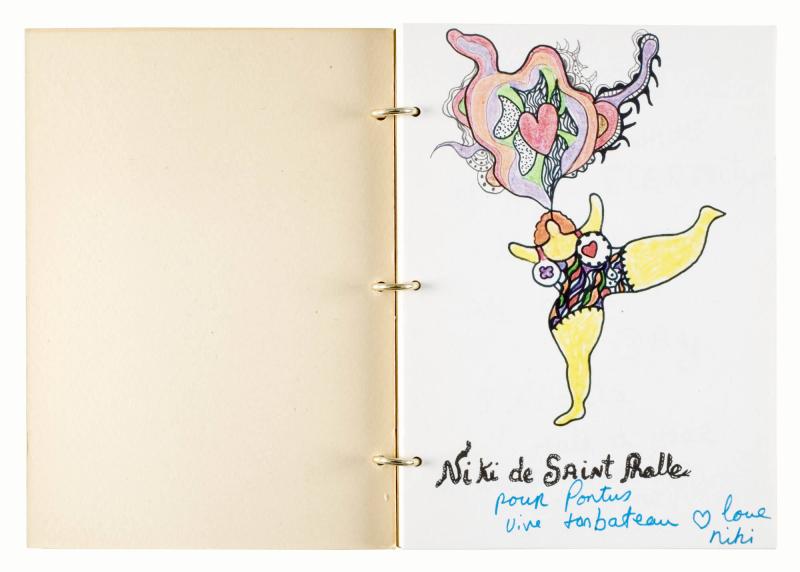 Niki de Saint Phalle
pour Pontus
vive ton bateau ♡ love
niki